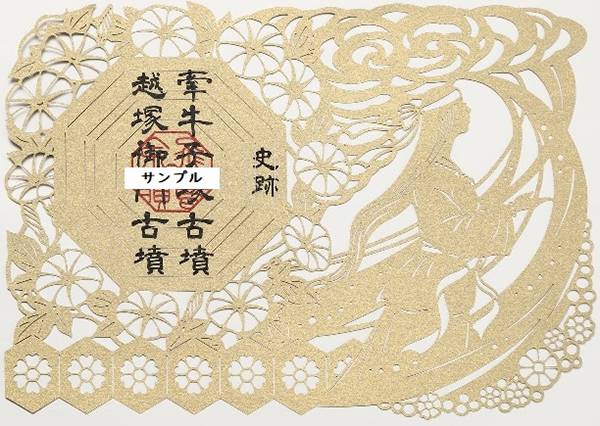 史跡
牽牛子塚古墳
越塚御門古墳
サンプル